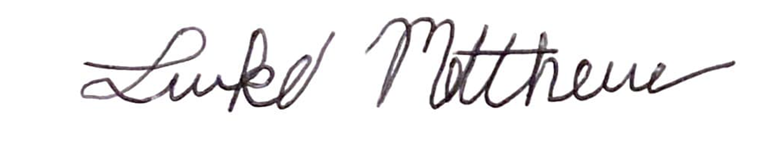 Luke Matthews